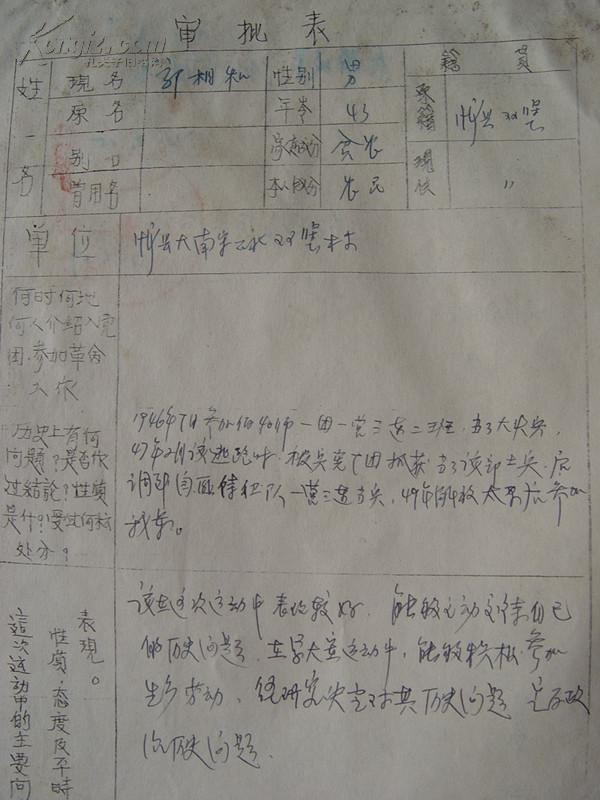 审批表
姓名
现名
邢相和
性别
男
籍贯
原名
年岁
43
原籍
忻县双堡
别口
家庭成分
贫农
现住
〃
曾用名
本人成分
农民
单位
忻县大南宋公社双堡村
何时何地
何人介绍入党
团.参加革命
工作
历史上有何
问题？是否做
过结论？性质
是什？受过何种
处分？
1946年7月参加伪40师一团一营三连二班，当了大头兵，
47年2月该逃跑
被兵
团抓获当了该部士兵，后
调到
队一营三连当兵，49年解放太原后参加
我军。
這次运動中的主要问
性質.态度及平時
表現。
该在这次运动中表现较好，能够主动交待自己
的历史问题，在
运动中，能够积极参加
生产劳动，经研究决定对其历史问题
是政
治历史问题.